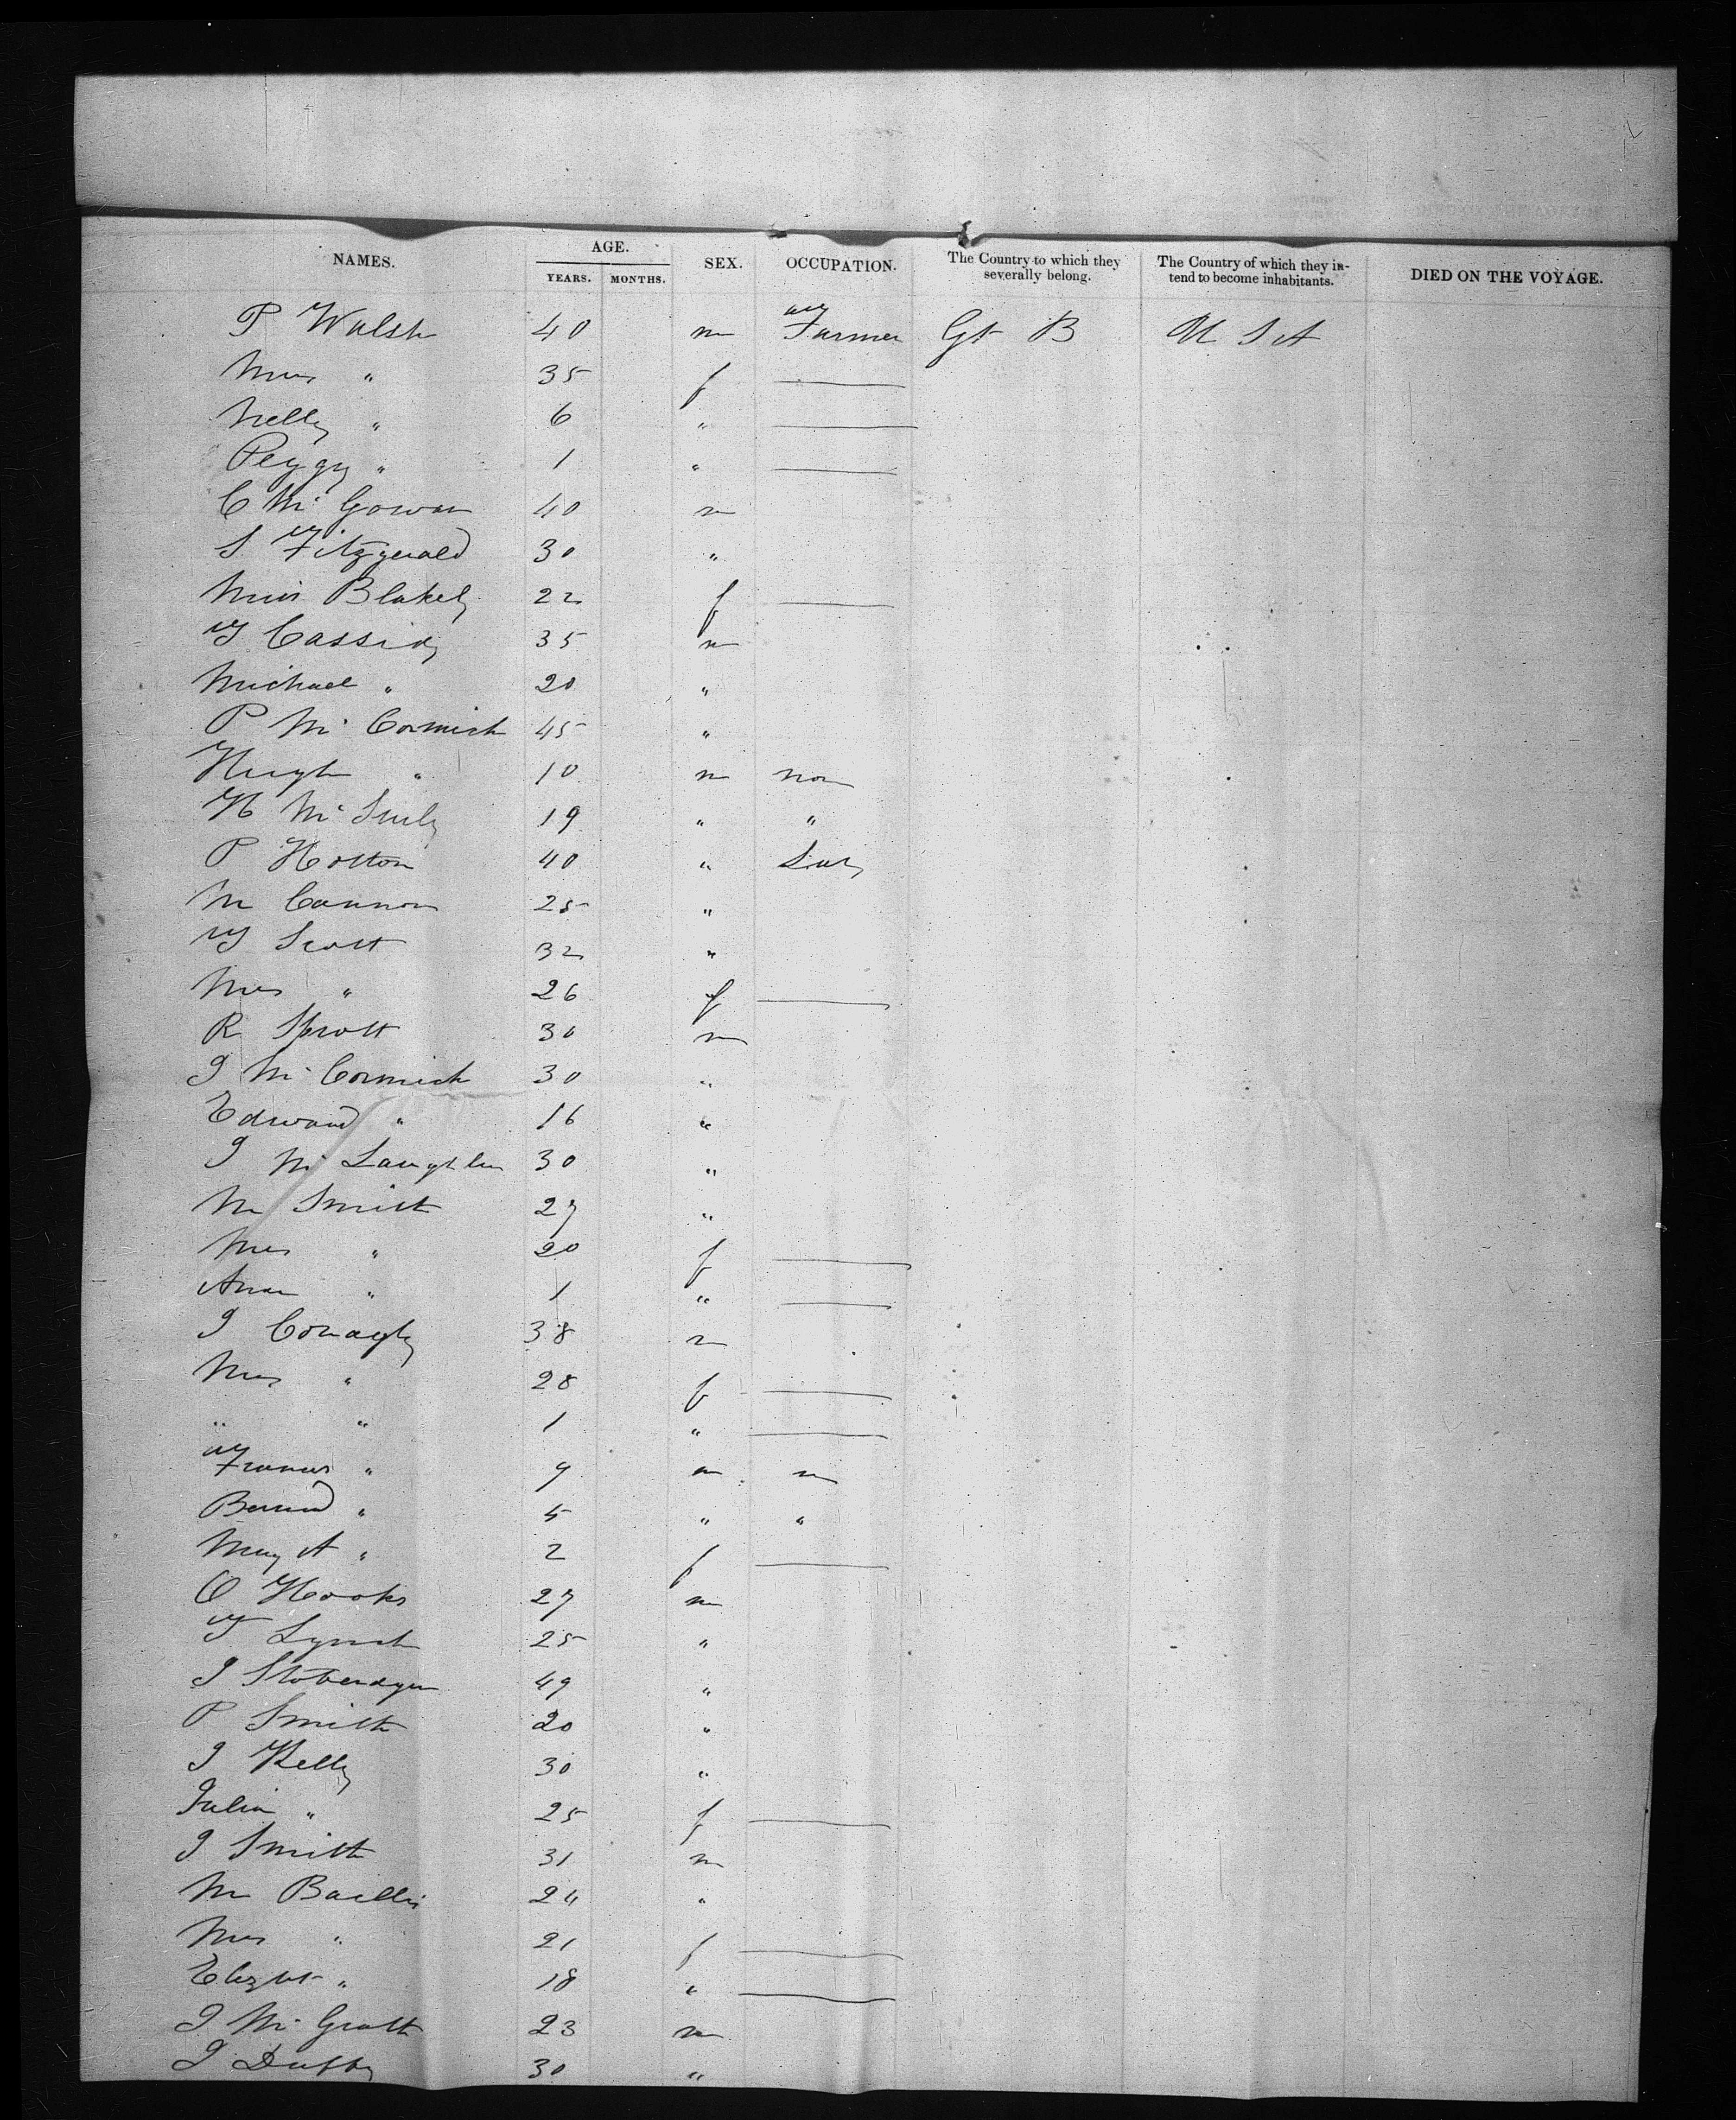 NAMES. AGE. SEX. OCCUPATION. The Country to which they severally belong. The Country of which they intend to become inhabitants. DIED ON THE VOYAGE.
YEARS. MONTHS.
P Walsh 40 m Farmer Gt B U S A
Mrs " 35 f —
Nelly " 6 " —
Peggy " 1 " —
C Mc Gowan 40 m
S Fitzgerald 30 "
Miss Blakely 22 f —
T Cassidy 35 m
Michael " 20 "
P Mc Cormick 45 "
Hugh " 10 m non
H Mc 19 " "
P Holton 40 " Lab
M Cannon 25 "
T Scott 32 "
Mrs " 26 f —
R Sprott 30 m
J Mc Cormick 30 "
Edward " 16 "
J Mc Laughlin 30 "
M Smith 27 "
Mrs " 20 f —
Ann " 1 " —
J Conaghy 38 m
Mrs " 28 f —
" " 1 " —
Francis " 9 m n
Bernard " 5 " "
Mary A " 2 f —
O Hooks 27 m
T Lynch 25 "
J 49 "
P Smith 20 "
J Kelly 30 "
Julia " 25 f —
J Smith 31 m
M Baillie 24 "
Mrs " 21 f —
Elizbt " 18 " —
J Mc Grath 23 m
J Duffy 30 "